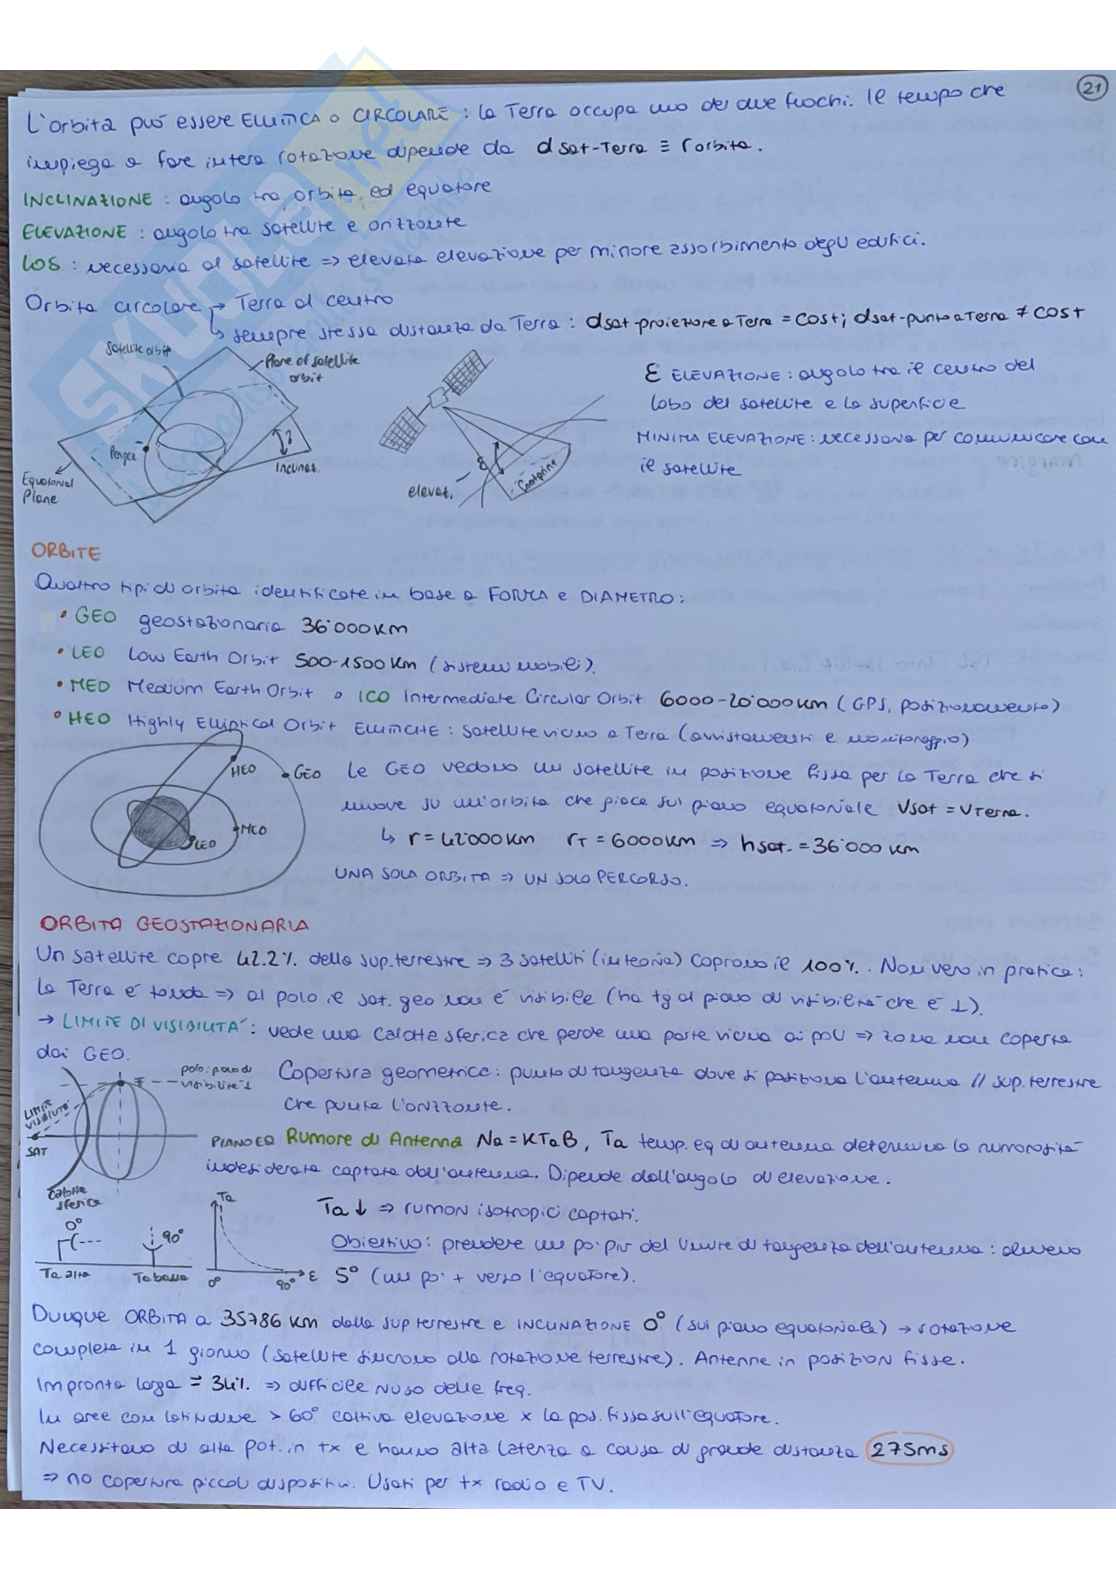 21
L'orbita può essere ELLITTICA o CIRCOLARE : la Terra occupa uno dei due fuochi. Il tempo che
impiega a fare intera rotazione dipende da d sat-Terra ≡ r orbita.
INCLINAZIONE : angolo tra orbita ed equatore
ELEVAZIONE : angolo tra satellite e orizzonte
LOS : necessaria al satellite => elevata elevazione per minore assorbimento degli edifici.
Orbita circolare → Terra al centro
↳ sempre stessa distanza da Terra : dsat-proiezione a Terra = cost ; dsat-punto a Terra ≠ cost
Satellite orbit
Plane of satellite
orbit
Perigee
Inclinat.
Equatorial
Plane
elevat.
ε
footprint
ε ELEVAZIONE : angolo tra il centro del
lobo del satellite e la superficie
MINIMA ELEVAZIONE : necessaria per comunicare con
il satellite
ORBITE
Quattro tipi di orbita identificate in base a FORMA e DIAMETRO :
• GEO geostazionaria 36'000 km
• LEO Low Earth Orbit 500-1500 km (sistemi mobili).
• MEO Medium Earth Orbit o ICO Intermediate Circular Orbit 6000-20'000 km (GPS, posizionamento)
• HEO Highly Elliptical Orbit ELLITTICHE : satellite vicino a Terra (avvistamenti e monitoraggio)
HEO
GEO
MEO
LEO
Le GEO vedono un satellite in posizione fissa per la Terra che si
muove su un'orbita che giace sul piano equatoriale Vsat = VTerra.
↳ r = 42'000 km rT = 6000 km => hsat. = 36'000 km
UNA SOLA ORBITA => UN SOLO PERCORSO.
ORBITA GEOSTAZIONARIA
Un satellite copre 42.2% della sup. terrestre => 3 satelliti (in teoria) coprono il 100%. Non vero in pratica :
la Terra è tonda => al polo il sat. geo non è visibile (ha tg al piano di visibilità che è ⊥).
→ LIMITE DI VISIBILITA' : vede una calotta sferica che perde una parte vicina ai poli => zona non coperta
dai GEO.
polo : piano di
visibilità ⊥
LIMITE
VISIBILITA'
SAT
PIANO EQ
Calotta
sferica
Copertura geometrica : punto di tangenza dove si posiziona l'antenna // sup. terrestre
che punta l'orizzonte.
Rumore di Antenna Na = KTaB, Ta temp. eq di antenna determina la rumorosità
indesiderata captata dall'antenna. Dipende dall'angolo di elevazione.
0°
Ta alta
90°
Ta bassa
Ta
0°
90°
ε
Ta ↓ => rumori isotropici captati.
Obiettivo : prendere un po' più del limite di tangenza dell'antenna : almeno
5° (un po' + verso l'equatore).
Dunque ORBITA a 35786 km dalla sup terrestre e INCLINAZIONE 0° (sul piano equatoriale) → rotazione
completa in 1 giorno (satellite sincrono alla rotazione terrestre). Antenne in posizioni fisse.
Impronta larga = 34% => difficile riuso delle freq.
In aree con latitudine > 60° cattiva elevazione x la pos. fissa sull'equatore.
Necessitano di alta pot. in tx e hanno alta latenza a causa di grande distanza 275ms
=> no copertura piccoli dispositivi. Usati per tx radio e TV.